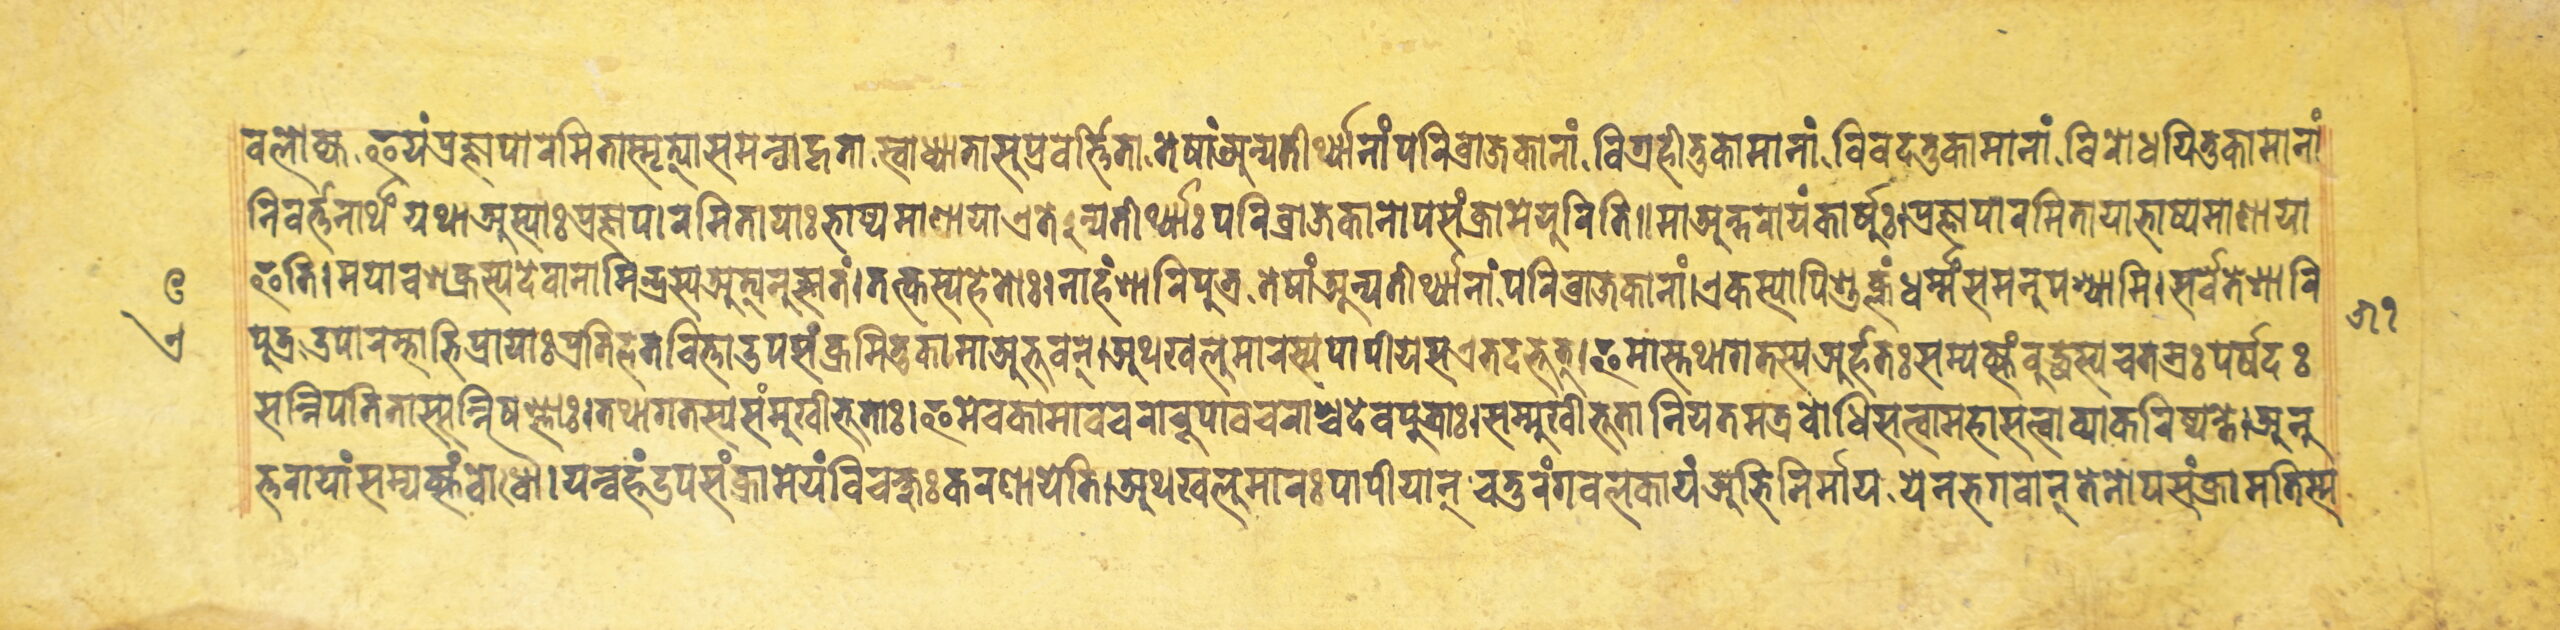 वलोक्य, इयंप्रज्ञापारमितास्मृत्यासमन्वाहृता, स्वाध्यातासुप्रवर्त्तिता, तेषांअन्यतीर्थ्यानांपरिव्राजकानां, विग्रहीतुकामानां, विवदतुकामानां, विरोधयितुकामानां
निवर्त्तनार्थं यथाअस्याःप्रज्ञापारमितायाःभाष्यमाणायाएतेऽन्यतीर्थ्याःपरिव्राजकानोपसंक्रामेयुरिति॥माअन्तरायंकार्षुः।प्रज्ञापारमितायाभाष्यमाणाया
इति।मयावशक्रस्यदेवानामिन्द्रस्यअत्यनुज्ञातं।तत्कस्यहेतोः।नाहंशारिपुत्र, तेषांअन्यतीर्थ्यानांपरिव्राजकानां।एकस्यापिशुक्लंधर्म्मंसमनुपश्यामि।सर्वेतेशारि
पुत्र, उपारम्भाभिप्रायाःप्रतिहतचित्ताउपसंक्रमितुकामाअभूवन्।अथखलुमारस्यपापीयसएतदभूत्।इमास्तथागतस्यअर्हतःसम्यक्संबुद्धस्यचतस्रःपर्षदः
सन्निपतितास्सन्निषण्णाः।तथागतस्यसंमुखीभूताः।इमेचकामावचरारूपावचराश्चदेवपुत्राः।सम्मुखीभूतानियतमत्रबोधिसत्वामहासत्वाव्याकरिष्यन्ते।अनु
त्तरायांसम्यक्संबोधौ।यन्वहंउपसंक्रामेयंविचक्षुःकरणायेति।अथखलुमारःपापीयान् चतुरंगबलकायंअभिनिर्माय, येनभगवान्तेनोपसंक्रामतिस्म